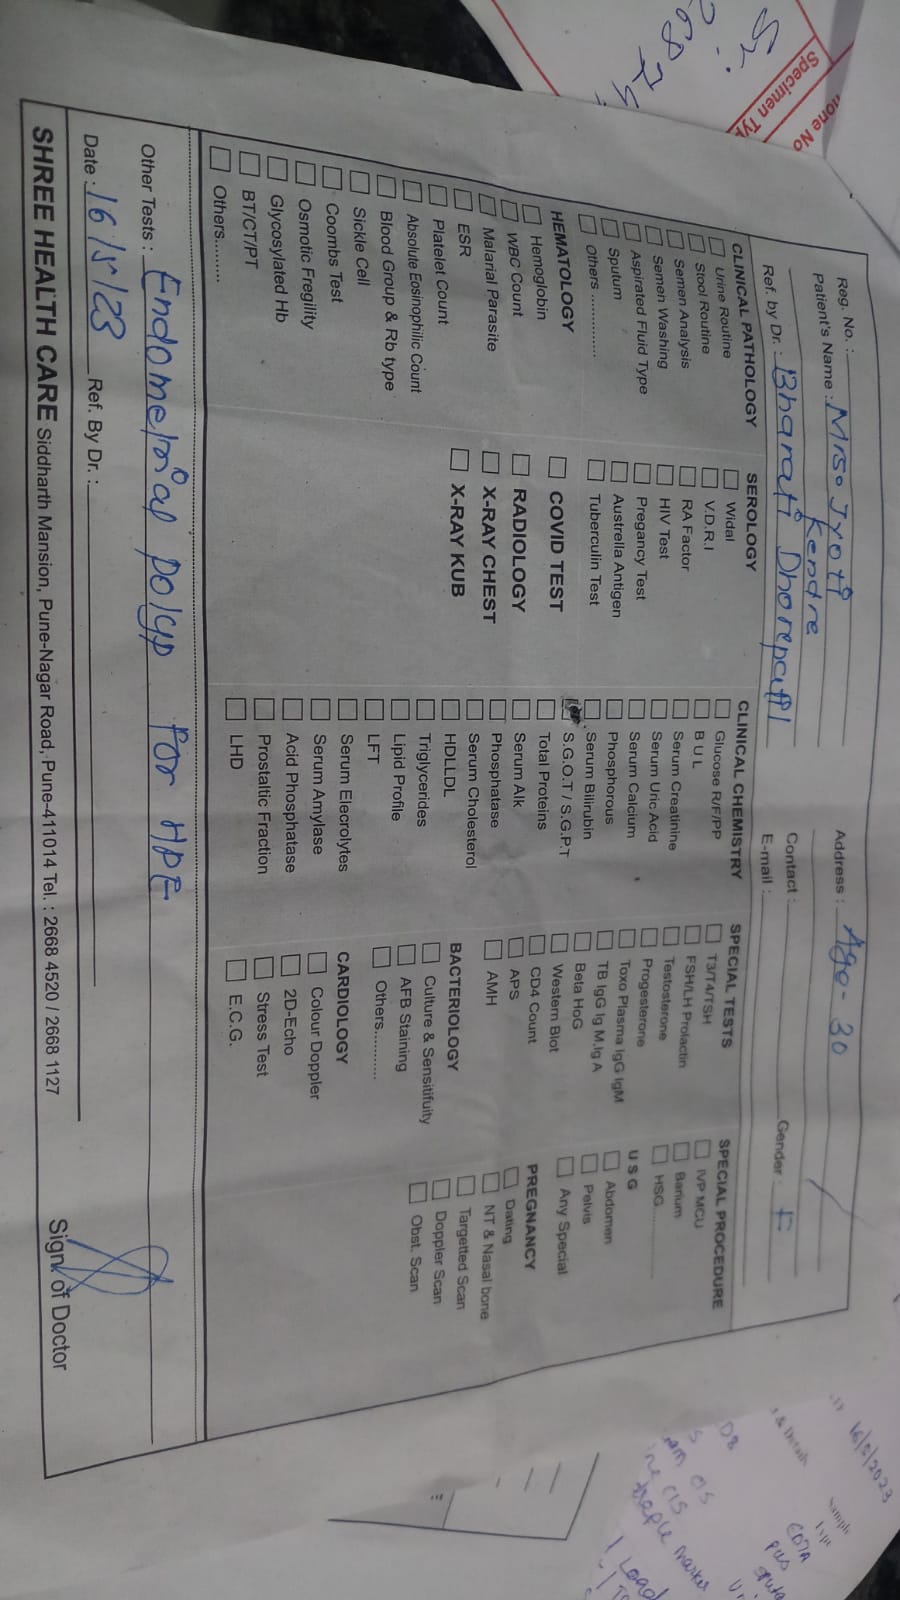 Reg. No. :
Patient's Name : Mrs. Jyoti Kendre
Ref. by Dr. : Bharati Dhorepatil
Address : Age - 30
Contact :
E-mail : Gender : F
CLINICAL PATHOLOGY
Urine Routine
Stool Routine
Semen Analysis
Semen Washing
Aspirated Fluid Type
Sputum
Others ............
HEMATOLOGY
Hemoglobin
WBC Count
Malarial Parasite
ESR
Platelet Count
Absolute Eosinophilic Count
Blood Group & Rb type
Sickle Cell
Coombs Test
Osmotic Fregility
Glycosylated Hb
BT/CT/PT
Others........
SEROLOGY
Widal
V.D.R.I
RA Factor
HIV Test
Pregancy Test
Austrella Antigen
Tuberculin Test
COVID TEST
RADIOLOGY
X-RAY CHEST
X-RAY KUB
CLINICAL CHEMISTRY
Glucose R/F/PP
B U L
Serum Creatinine
Serum Uric Acid
Serum Calcium
Phosphorous
Serum Bilirubin
S.G.O.T / S.G.P.T
Total Proteins
Serum Alk
Phosphatase
Serum Cholesterol
HDLLDL
Triglycerides
Lipid Profile
LFT
Serum Elecrolytes
Serum Amylase
Acid Phosphatase
Prostaltic Fraction
LHD
SPECIAL TESTS
T3/T4/TSH
FSH/LH Prolactin
Testosterone
Progesterone
Toxo Plasma IgG IgM
TB IgG Ig M.Ig A
Beta HoG
Western Blot
CD4 Count
APS
AMH
BACTERIOLOGY
Culture & Sensitifuity
AFB Staining
Others..........
CARDIOLOGY
Colour Doppler
2D-Echo
Stress Test
E.C.G.
SPECIAL PROCEDURE
IVP MCU
Barium
HSG............
U S G
Abdomen
Pelvis
Any Special
PREGNANCY
Dating
NT & Nasal bone
Targetted Scan
Doppler Scan
Obst. Scan
Other Tests : Endometrial polyp for HPE
Date : 16/5/23 Ref. By Dr. :
Sign of Doctor
SHREE HEALTH CARE Siddharth Mansion, Pune-Nagar Road, Pune-411014 Tel. : 2668 4520 / 2668 1127
hone No
Specimen Ty
16/5/2023
Sample